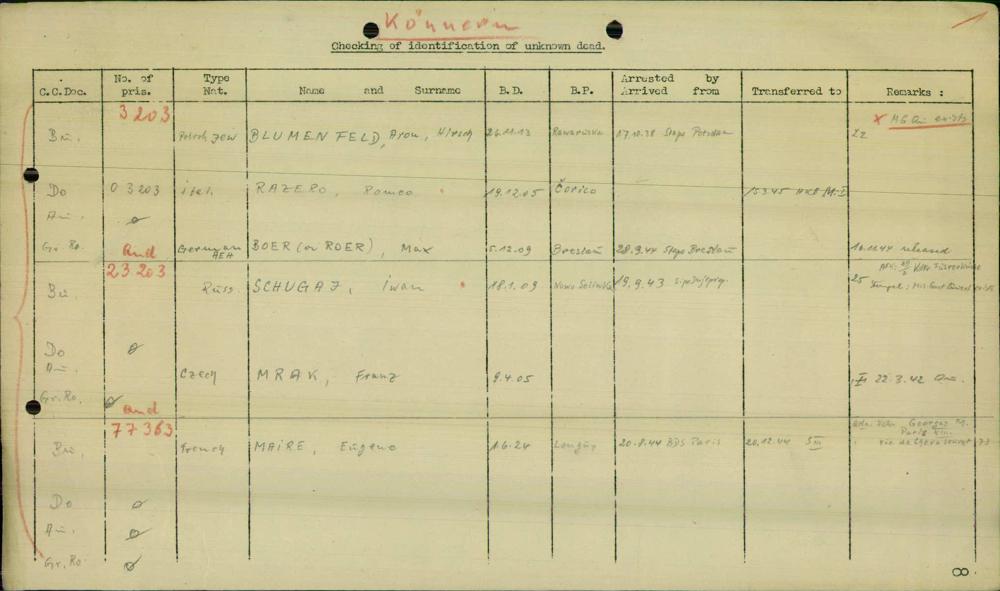 Könnern
Checking of identification of unknown dead.
C.C.Doc. No. of pris. Type Nat. Name and Surname B.D. B.P. Arrested by Arrived from Transferred to Remarks :
3203
Bu. Polish Jew BLUMENFELD, Aron, Hirsch 26.11.13 Rawaruska 17.10.38 Stapo Potsdam 22 x MG Au exists
Do 03203 ital. RAZERO, Romeo 19.12.05 Čorico 15345
Au. ∅
Gr. Ro. and German AEH BOER (or ROER), Max 5.12.09 Breslau 28.9.44 Stapo Breslau 16.12.44 released
23203
Bu. Russ. SCHUGAJ, Iwan 18.1.09 Nowo 19.9.43 25
Do ∅
Au. Czech MRAK, Franz 9.4.05 22.3.42 Au.
Gr. Ro. ∅ and
77363
Bu. French MAIRE, Eugene 1.6.24 Longwy 20.8.44 BDS Paris 20.12.44 SIII Georges M. Paris
Do ∅
Au. ∅
Gr. Ro ∅
8.